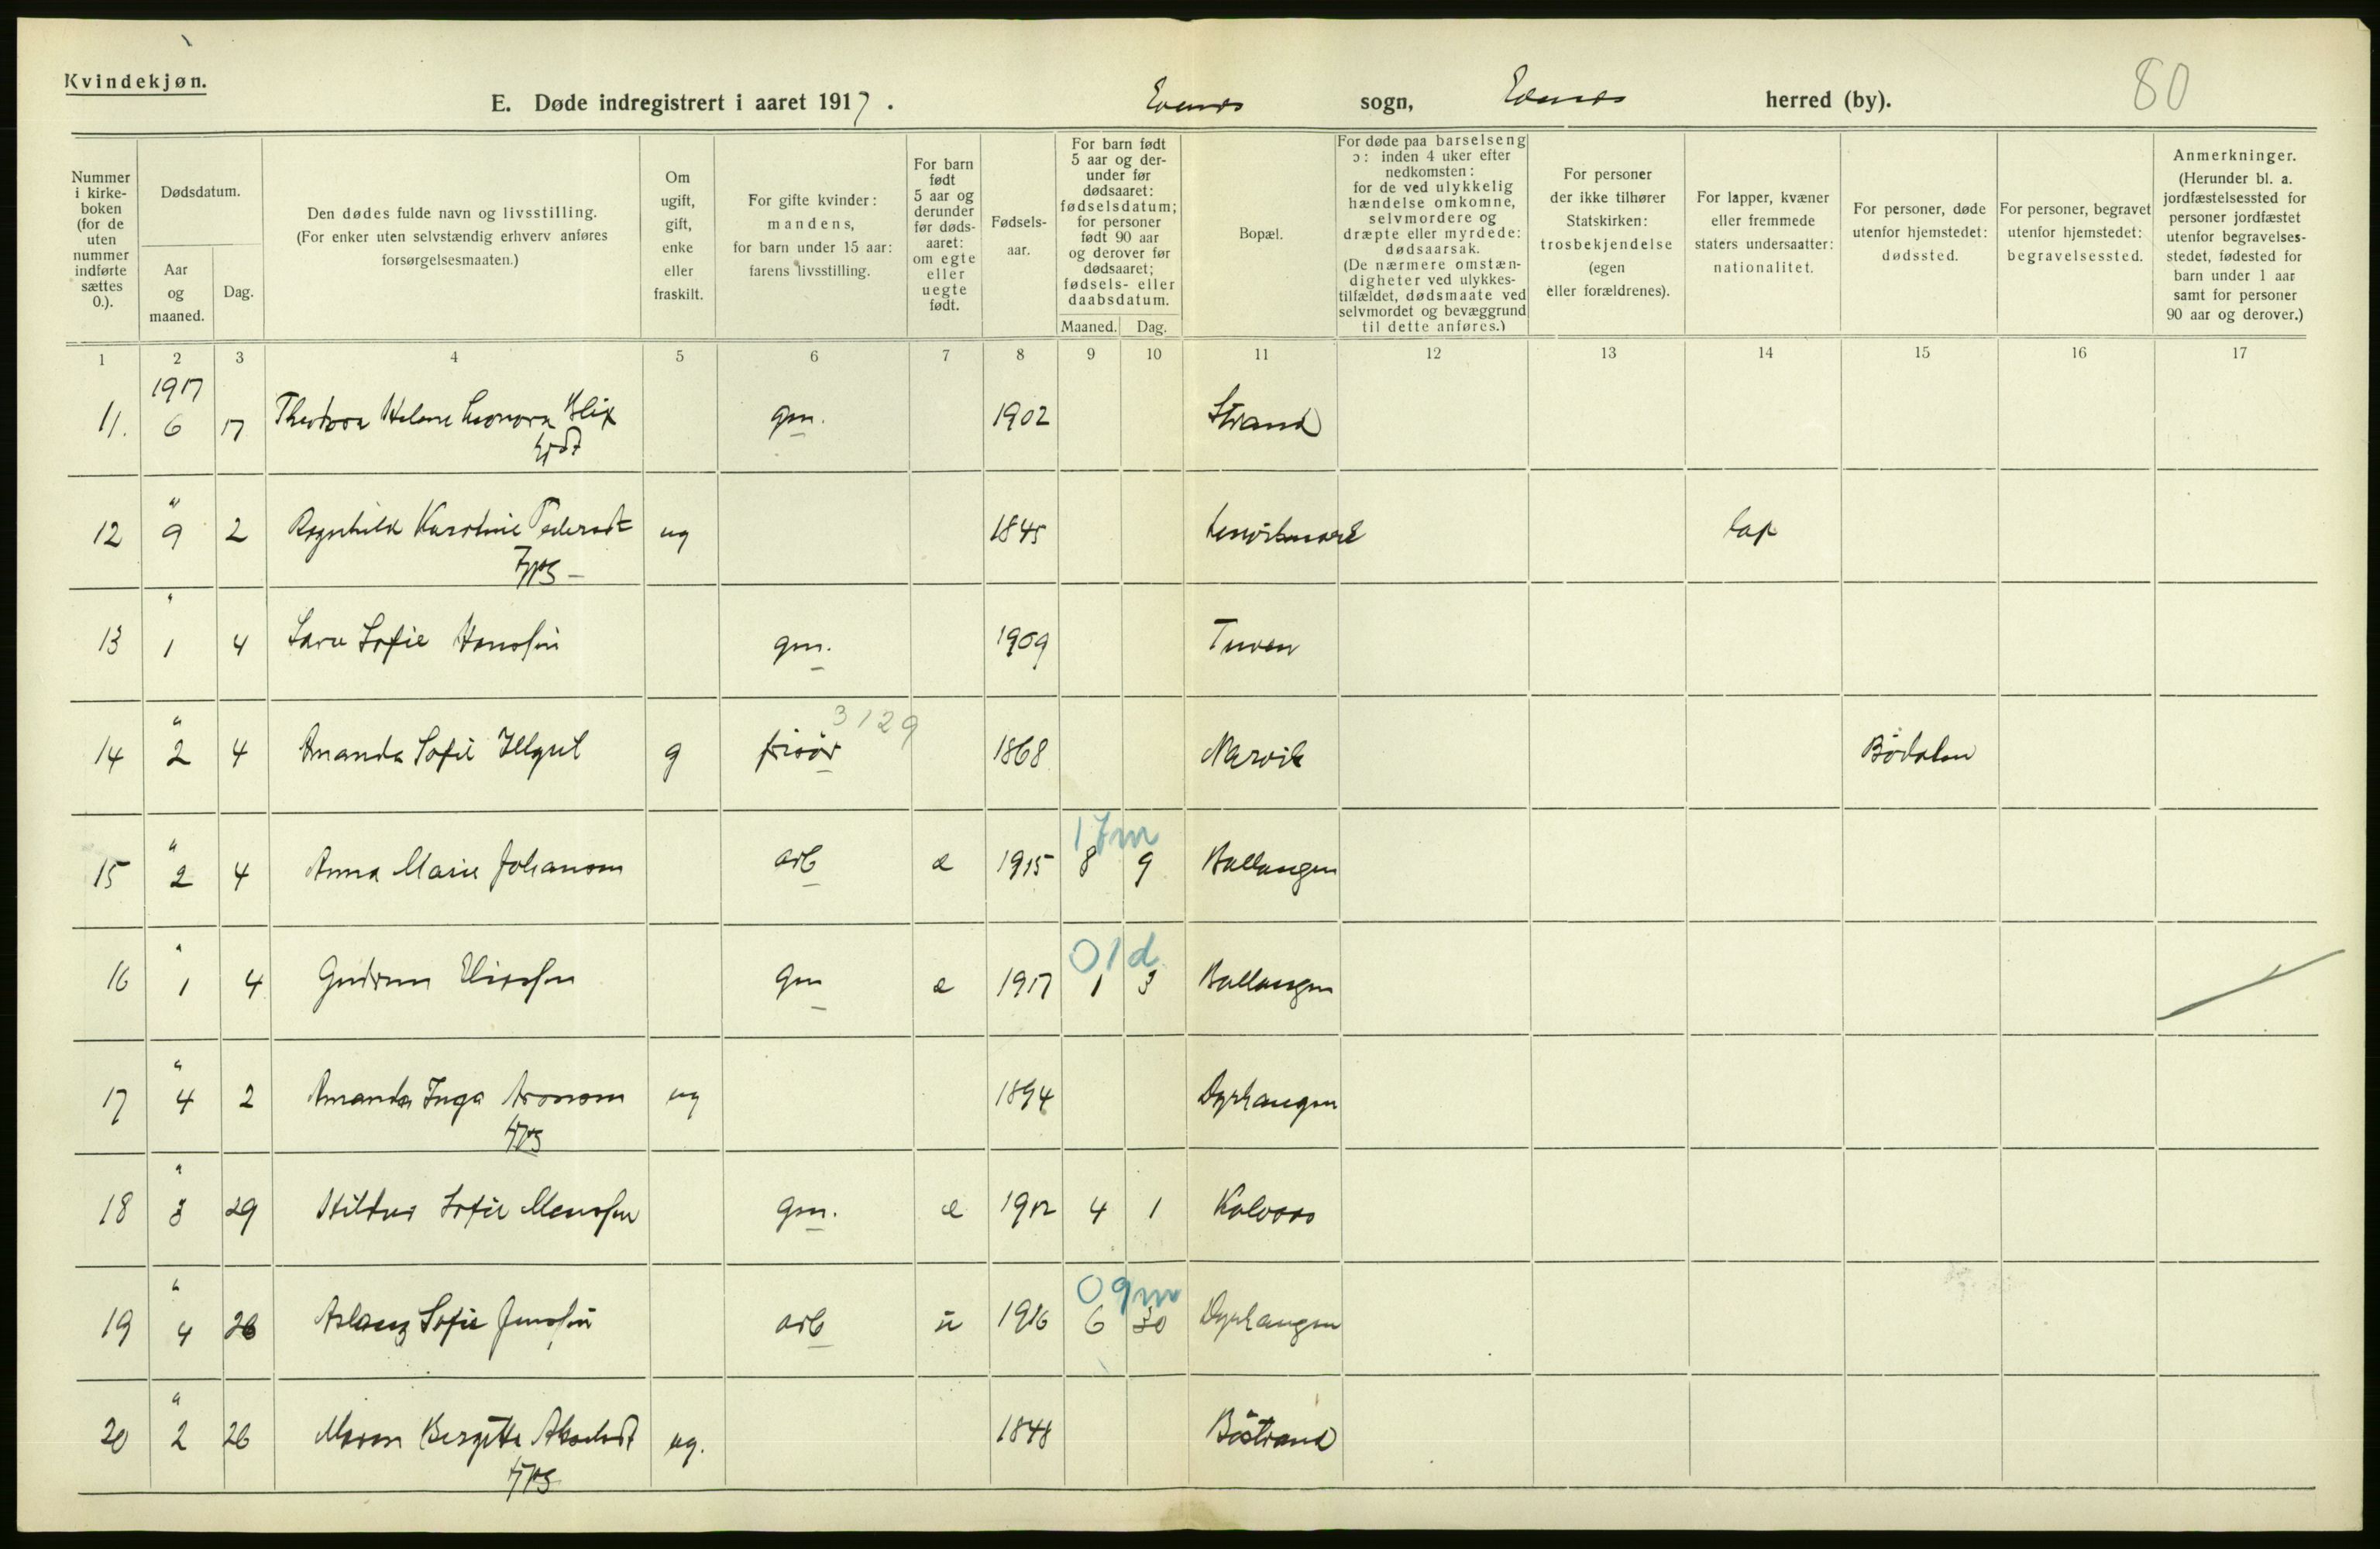 Kvindekjøn.
E. Døde indregistrert i aaret 1917. Evenes sogn, Evenes herred (by). 80
Nummer i kirkeboken (for de uten nummer indførte sættes 0.).
Dødsdatum.
Aar og maaned.
Dag.
Den dødes fulde navn og livsstilling. (For enker uten selvstændig erhverv anføres forsørgelsesmaaten.)
Om ugift, gift, enke eller fraskilt.
For gifte kvinder: mandens, for barn under 15 aar: farens livsstilling.
For barn født 5 aar og derunder før dødsaaret: om egte eller uegte født.
Fødselsaar.
For barn født 5 aar og derunder før dødsaaret: fødselsdatum; for personer født 90 aar og derover før dødsaaret; fødsels- eller daabsdatum.
Maaned. Dag.
Bopæl.
For døde paa barselseng ɔ: inden 4 uker efter nedkomsten: for de ved ulykkelig hændelse omkomne, selvmordere og dræpte eller myrdede: dødsaarsak. (De nærmere omstændigheter ved ulykkestilfældet, dødsmaate ved selvmordet og bevæggrund til dette anføres.)
For personer der ikke tilhører Statskirken: trosbekjendelse (egen eller forældrenes).
For lapper, kvæner eller fremmede staters undersaatter: nationalitet.
For personer, døde utenfor hjemstedet: dødssted.
For personer, begravet utenfor hjemstedet: begravelsessted.
Anmerkninger. (Herunder bl. a. jordfæstelsessted for personer jordfæstet utenfor begravelsesstedet, fødested for barn under 1 aar samt for personer 90 aar og derover.)
1 2 3 4 5 6 7 8 9 10 11 12 13 14 15 16 17
1917
11. 6 17 Theodora Helene Leonora Blix gm. 1902 Strand
"
12 9 2 Ragnhild Karoline Pedersdt ug 1845 lap
"
13 1 4 Sara Sofie Hansen gm. 1909
3129
"
14 2 4 Amanda Sofie g frisör 1868 Narvik Bödalen
17m
"
15 2 4 Anna Marie Johansen arb e 1915 8 9 Ballangen
01d.
"
16 1 4 Gudrun gm e 1917 1 3 Ballangen
"
17 4 2 Amanda Inga Aronsen ug 1894 Dyrhaugen
"
18 3 29 Sofie gm. e 1912 4 1 Kalvaas
09m
"
19 4 26 Aslaug Sofie Jensen arb u 1916 6 30 Dyrhaugen
"
20 2 26 Maren Bergitte ug. 1848 Böstrand